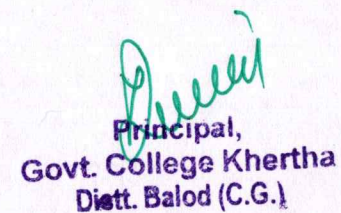 Principal,
Govt. College Khertha
Distt. Balod (C.G.)